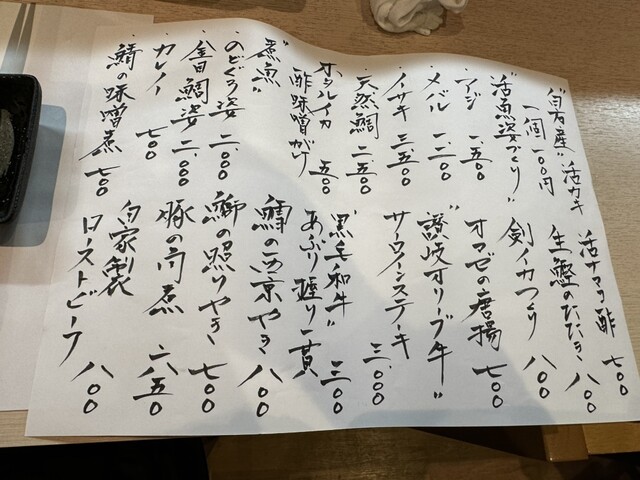 "白石産" 活カキ
一個 一〇〇円
"活魚姿づくり"
・アジ 一、五〇〇
・メバル 一、二〇〇
・イサキ 三、五〇〇
・天然鯛 二、五〇〇
ホタルイカ
酢味噌がけ 五〇〇
"煮魚"
・のどぐろ姿 二、〇〇〇
・金目鯛姿 二、〇〇〇
・カレイ 七〇〇
・鯖の味噌煮 七〇〇
活ナマコ酢 七〇〇
生鰹のたたき 八〇〇
剣イカつくり 八〇〇
オコゼの唐揚 七〇〇
"讃岐オリーブ牛"
サーロインステーキ 三、〇〇〇
"黒毛和牛"
あぶり握り一貫 三〇〇
鯛の西京やき 八〇〇
鰤の照りやき 七〇〇
豚の角煮 八五〇
自家製
ローストビーフ 八〇〇